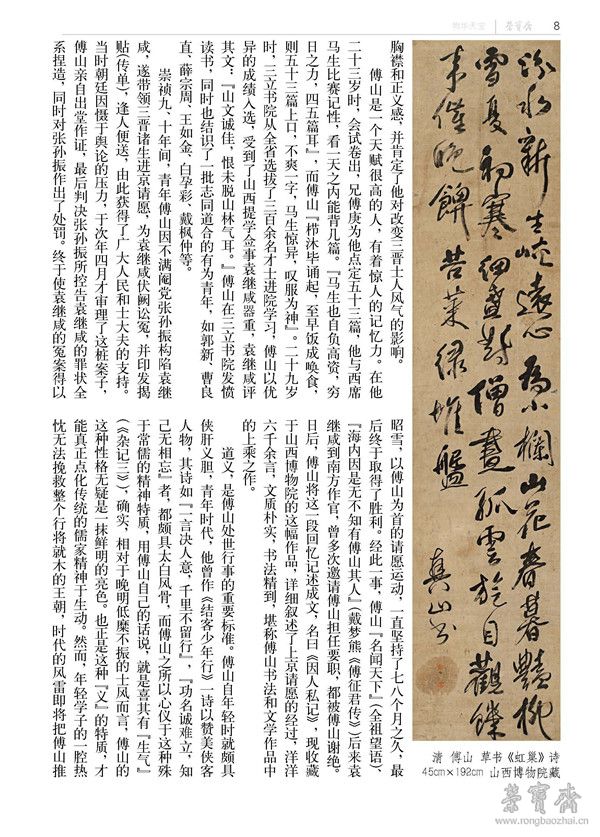 物华天宝 荣宝斋 8
汾水新生峽遠心為小欄山花春暮豔柳
雪夏初寒細盞對僧盡孤雲旋目觀饌
來催晚餅苦菜綠堆盤
真山書
清 傅山 草书《虹巢》诗
45cm×192cm 山西博物院藏
胸襟和正义感,并肯定了他对改变三晋士人风气的影响。
傅山是一个天赋很高的人,有着惊人的记忆力。在他
二十三岁时,会试卷出,兄傅庚为他点定五十三篇,他与西席
马生比赛记性,看一天之内能背几篇。『马生也自负高资,穷
日之力,四五篇耳』,而傅山『栉沐毕诵起,至早饭成唤食,
则五十三篇上口,不爽一字,马生惊异,叹服为神』。二十九岁
时,三立书院从全省选拔了三百余名才士进院学习,傅山以优
异的成绩入选,受到了山西提学佥事袁继咸器重,袁继咸评
其文:『山文诚佳,恨未脱山林气耳。』傅山在三立书院发愤
读书,同时也结识了一批志同道合的有为青年,如郭新、曹良
直、薛宗周、王如金、白孕彩、戴枫仲等。
崇祯九、十年间,青年傅山因不满阉党张孙振构陷袁继
咸,遂带领三晋诸生进京请愿,为袁继咸伏阙讼冤,并印发揭
贴(传单),逢人便送,由此获得了广大人民和士大夫的支持。
当时朝廷因慑于舆论的压力,于次年四月才审理了这桩案子,
傅山亲自出堂作证,最后判决张孙振所控告袁继咸的罪状全
系捏造,同时对张孙振作出了处罚。终于使袁继咸的冤案得以
昭雪,以傅山为首的请愿运动,一直坚持了七八个月之久,最
后终于取得了胜利。经此一事,傅山『名闻天下』(全祖望语)、
『海内因是无不知有傅山其人』(戴梦熊《傅征君传》)后来袁
继咸到南方作官,曾多次邀请傅山担任要职,都被傅山谢绝。
日后,傅山将这一段回忆记述成文,名曰《因人私记》,现收藏
于山西博物院的这幅作品,详细叙述了上京请愿的经过,洋洋
六千余言,文质朴实,书法精到,堪称傅山书法和文学作品中
的上乘之作。
道义,是傅山处世行事的重要标准。傅山自年轻时就颇具
侠肝义胆,青年时代,他曾作《结客少年行》一诗以赞美侠客
人物,其诗如『一言决人意,千里不留行』,『功名诚难立,知
己无相忘』者,都颇具太白风骨,而傅山之所以心仪于这种殊
于常儒的精神特质,用傅山自己的话说,就是喜其有『生气』
(《杂记三》),确实,相对于晚明低糜不振的士风而言,傅山的
这种性格无疑是一抹鲜明的亮色。也正是这种『义』的特质,才
能真正点化传统的儒家精神于生动。然而,年轻学子的一腔热
忱无法挽救整个行将就木的王朝,时代的风雷即将把傅山推
荣宝斋
www.rongbaozhai.cn